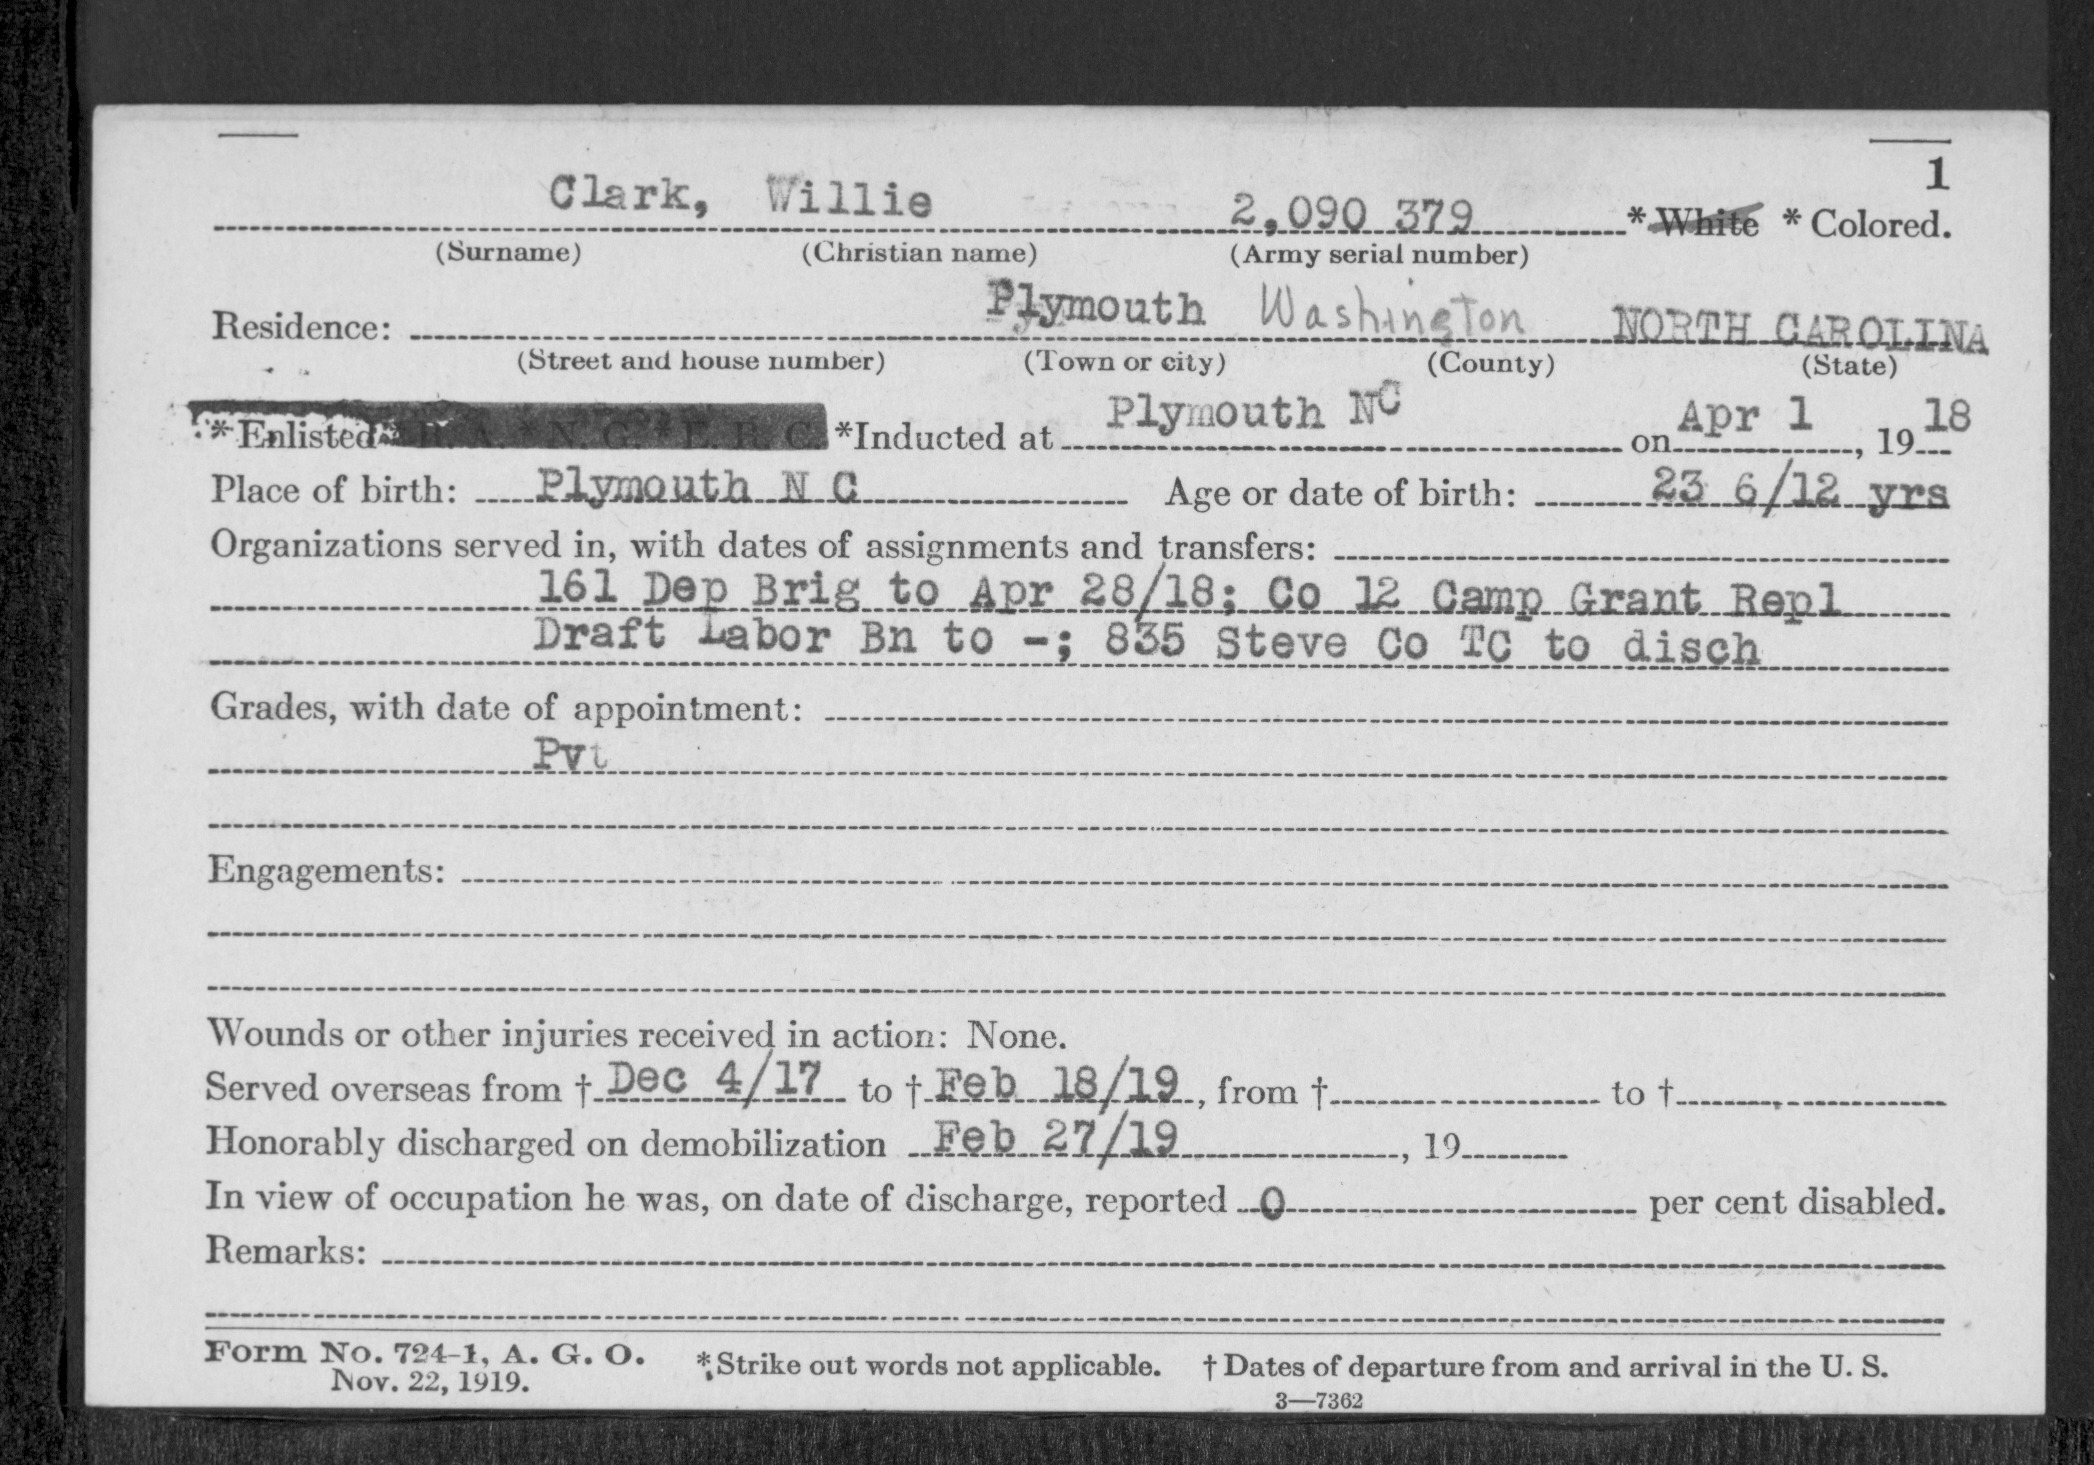 1
Clark, Willie 2,090 379 * White * Colored.
(Surname) (Christian name) (Army serial number)
Residence: Plymouth Washington NORTH CAROLINA
(Street and house number) (Town or city) (County) (State)
*Enlisted * R. A. * N. G. * E. R. C. *Inducted at Plymouth NC on Apr 1, 19 18
Place of birth: Plymouth N C Age or date of birth: 23 6/12 yrs
Organizations served in, with dates of assignments and transfers:
161 Dep Brig to Apr 28/18; Co 12 Camp Grant Repl
Draft Labor Bn to -; 835 Steve Co TC to disch
Grades, with date of appointment:
Pvt
Engagements:
Wounds or other injuries received in action: None.
Served overseas from † Dec 4/17 to † Feb 18/19, from † to †
Honorably discharged on demobilization Feb 27/19, 19
In view of occupation he was, on date of discharge, reported 0 per cent disabled.
Remarks:
Form No. 724-1, A. G. O. *Strike out words not applicable. † Dates of departure from and arrival in the U. S.
Nov. 22, 1919.
3—7362